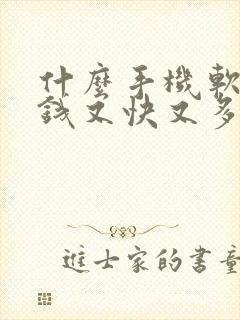 什麼手機軟
錢又快又多
進士家的書童